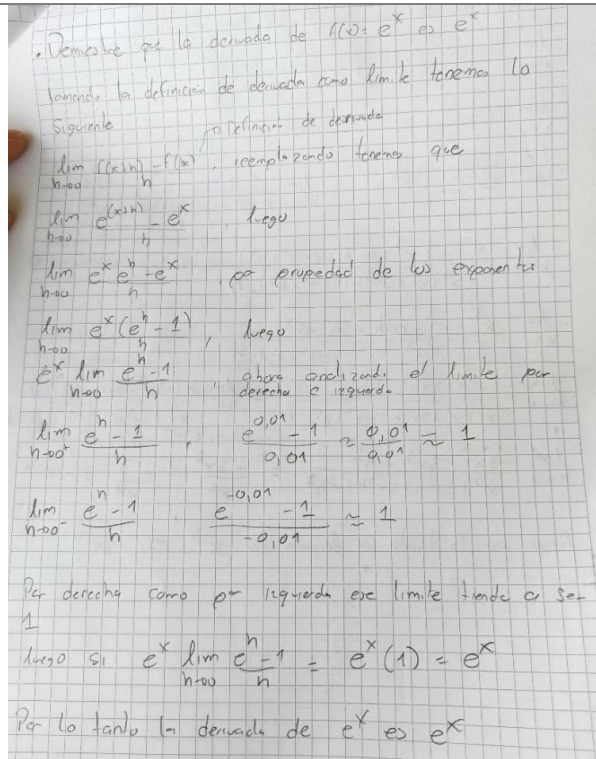 . Demuestre que la derivada de f(x)= e^x es e^x
tomando la definición de derivada como limite tenemos lo
siguiente
Definición de derivada
lim h→0 (f(x+h) - f(x))/h , reemplazando tenemos que
lim h→0 (e^(x+h) - e^x)/h luego
lim h→0 (e^x e^h - e^x)/h , por propiedad de los exponentes
lim h→0 (e^x (e^h - 1))/h , luego
e^x lim h→0 (e^h - 1)/h , ahora analizando el limite por
derecha e izquierda
lim h→0^+ (e^h - 1)/h , (e^0,01 - 1)/0,01 ≈ 0,01/0,01 ≈ 1
lim h→0^- (e^h - 1)/h (e^-0,01 - 1)/-0,01 ≈ 1
Por derecha como por izquierda ese limite tiende a ser
1
luego si e^x lim h→0 (e^h - 1)/h = e^x (1) = e^x
Por lo tanto la derivada de e^x es e^x